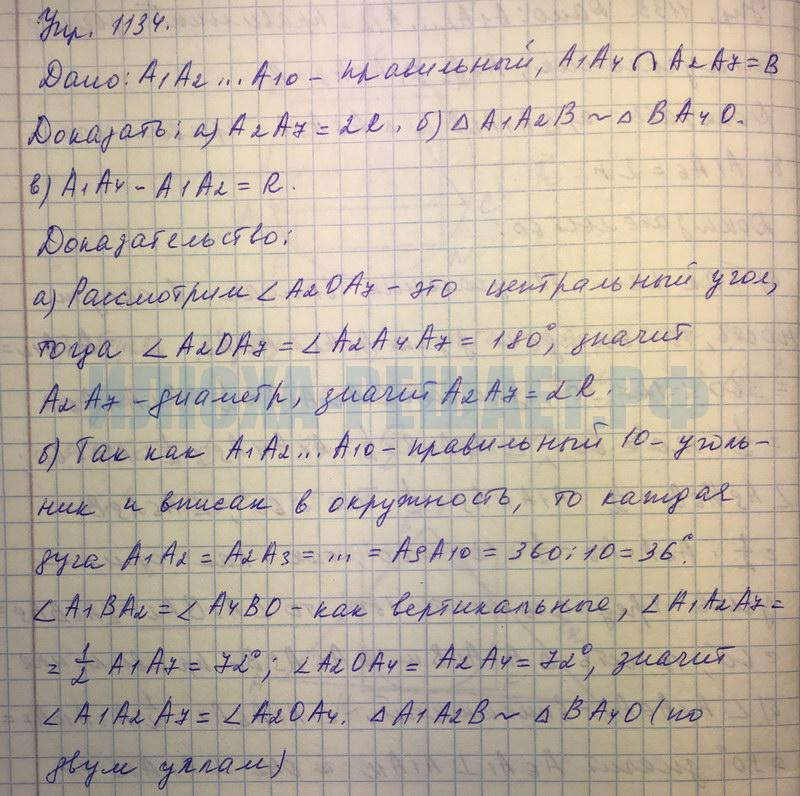 Упр. 1134.
Дано: A1A2...A10 - правильный, A1A4 ∩ A2A7 = B
Доказать: а) A2A7 = 2R. б) △ A1A2B ~ △ BA4O.
в) A1A4 - A1A2 = R.
Доказательство:
а) Рассмотрим ∠A2OA7 - это центральный угол,
тогда ∠A2OA7 = ∠A2A4A7 = 180°, значит
ИЛЮХА-РЕШАЕТ.РФ
A2A7 - диаметр, значит A2A7 = 2R.
б) Так как A1A2...A10 - правильный 10-уголь-
ник и вписан в окружность, то каждая
дуга A1A2 = A2A3 = ... = A9A10 = 360:10 = 36°.
∠A1BA2 = ∠A4BO - как вертикальные, ∠A1A2A7 =
= 1/2 A1A7 = 72°; ∠A2OA4 = A2A4 = 72°, значит
∠A1A2A7 = ∠A2OA4. △A1A2B ~ △BA4O (по
двум углам)